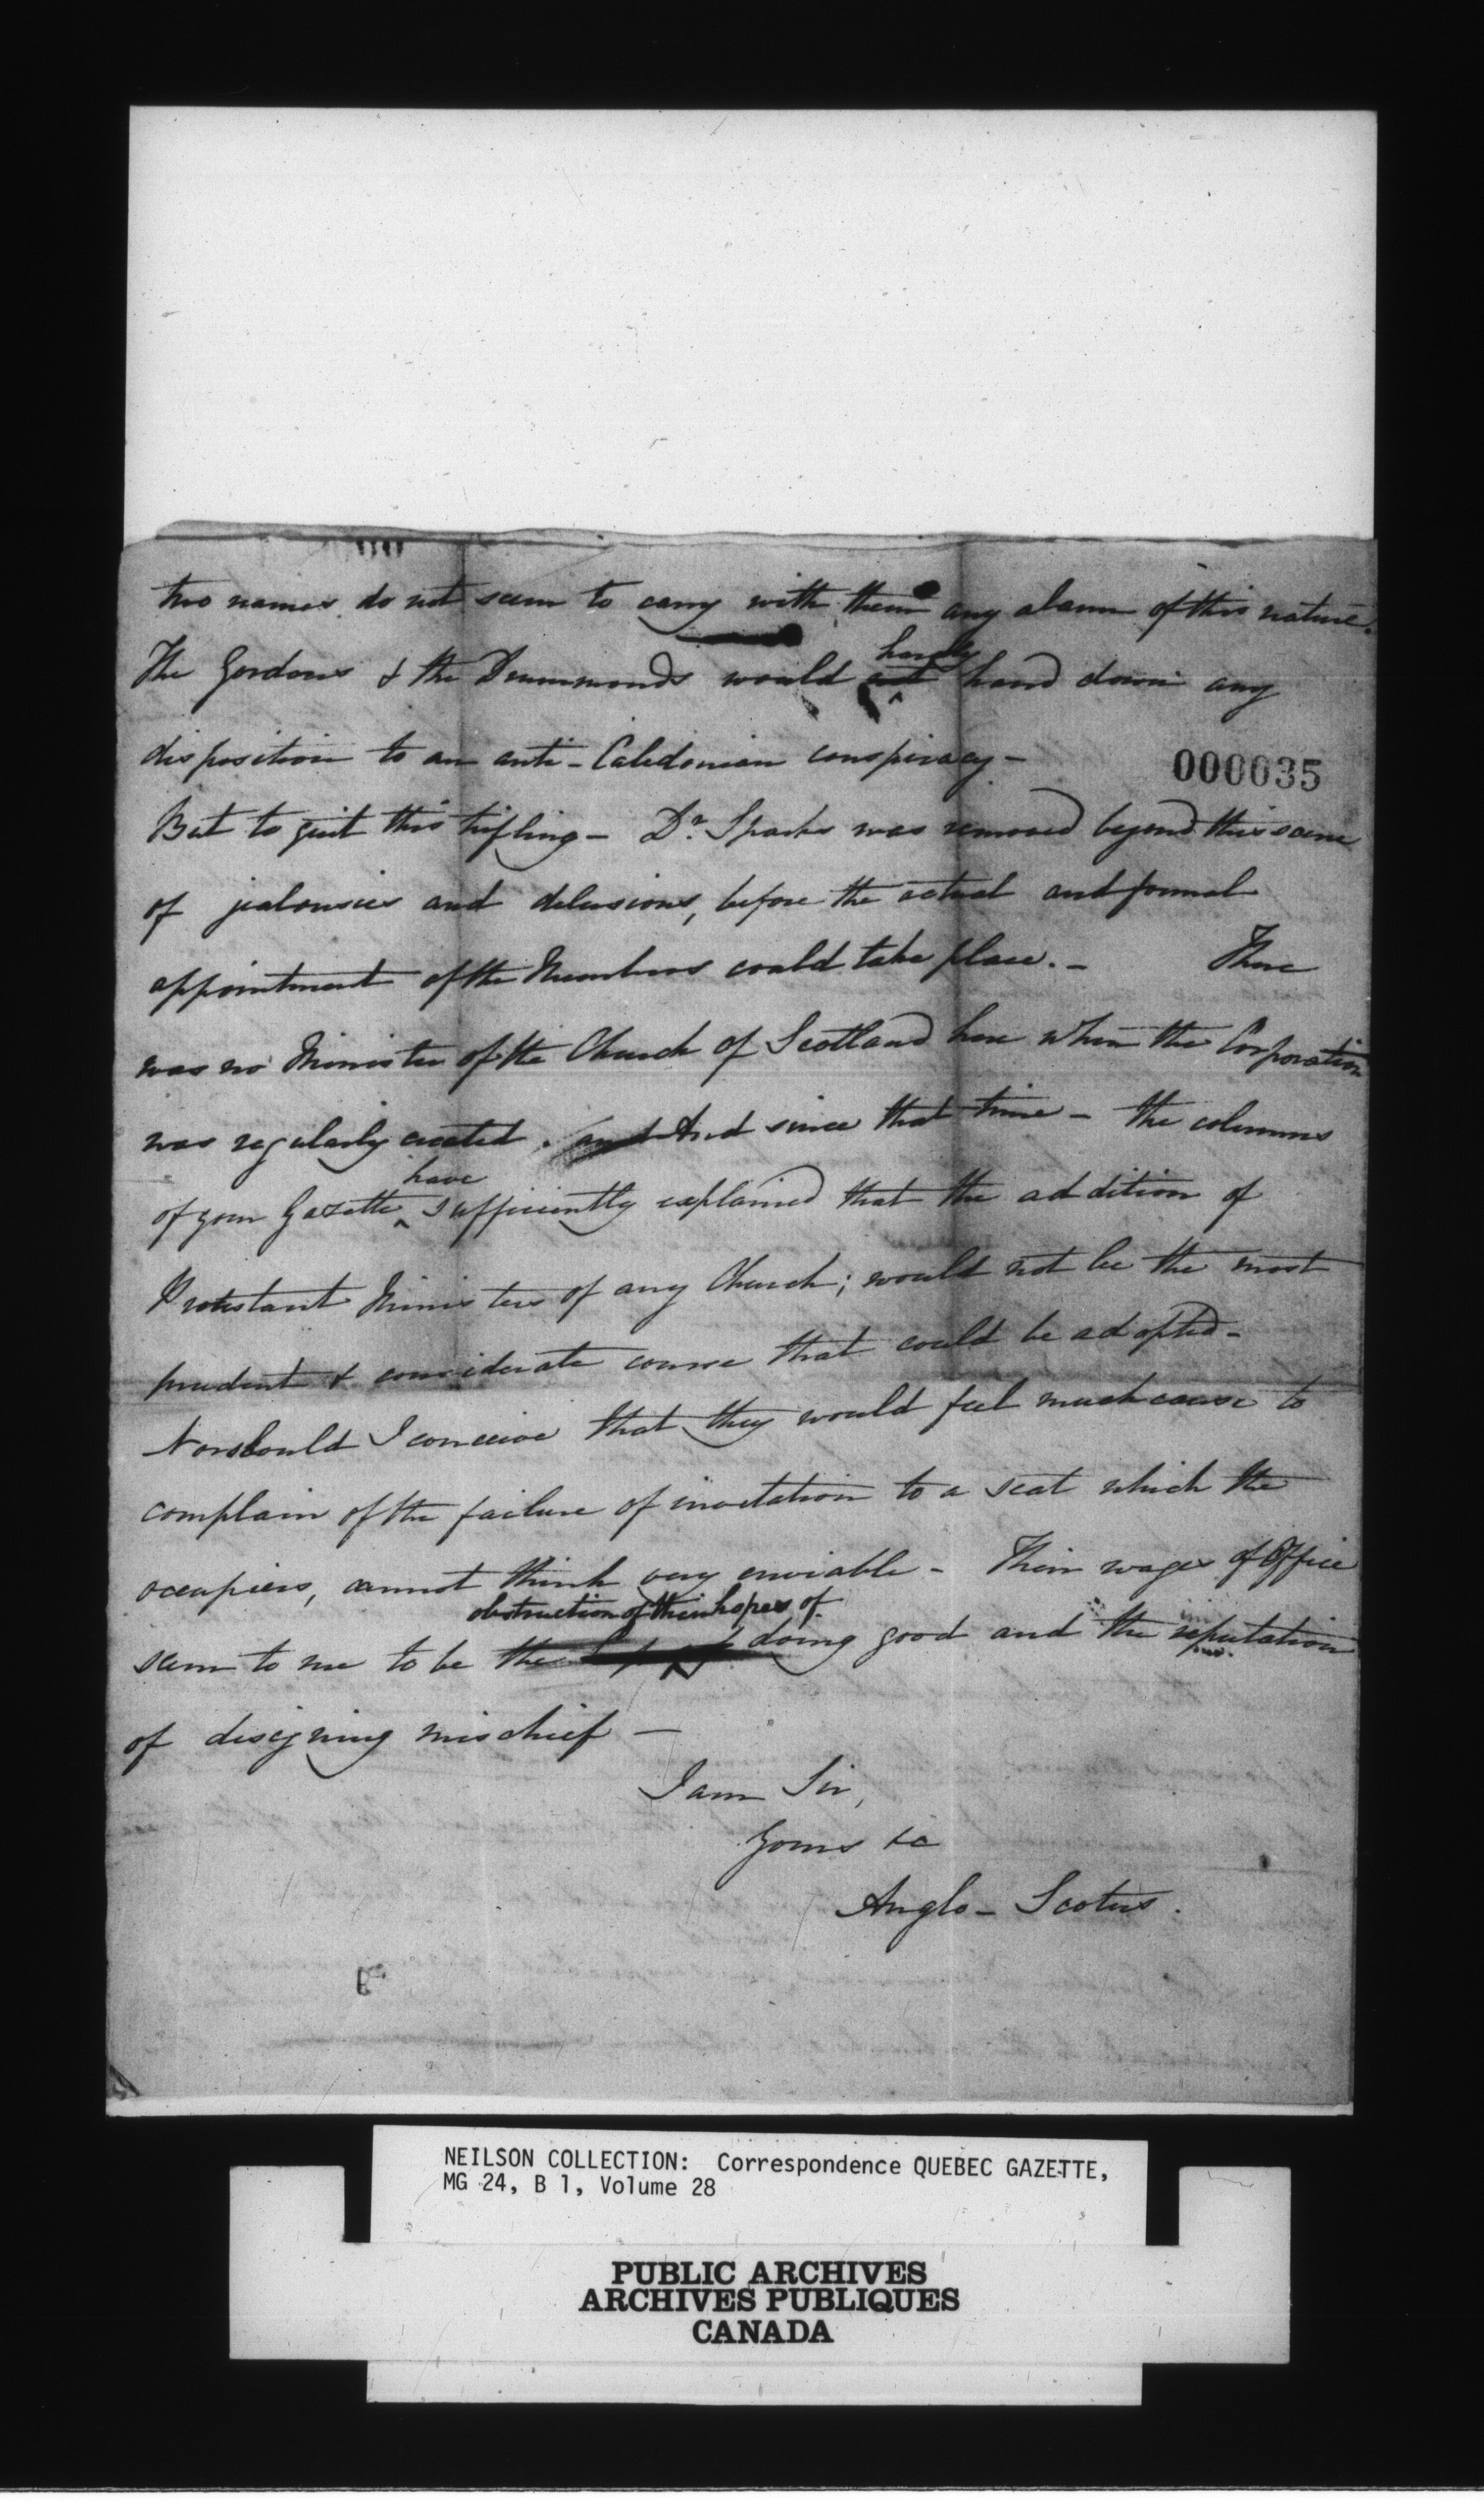 two names do not seem to carry with them any alarm of this nature.
The Gordons & the Drummonds would hardly hand down any
disposition to an anti-Caledonian conspiracy -
000035
But to quit this trifling - Dr. Sparks was removed beyond this scene
of jealousies and delusions, before the actual and formal
appointment of the Members could take place. - There
was no Minister of the Church of Scotland here when the Corporation
was regularly created. and And since that time - the columns
of your Gazette have sufficiently explained that the addition of
Protestant Ministers of any Church; would not be the most
prudent & considerate course that could be adopted -
Nor should I conceive that they would feel much cause to
complain of the failure of invitation to a seat which the
occupiers, cannot think very enviable - Their wages of Office
seem to me to be the obstruction of their hopes of doing good and the reputation
of designing mischief -
I am Sir,
Yours &c
Anglo-Scotus.
NEILSON COLLECTION: Correspondence QUEBEC GAZETTE,
MG 24, B 1, Volume 28
PUBLIC ARCHIVES
ARCHIVES PUBLIQUES
CANADA